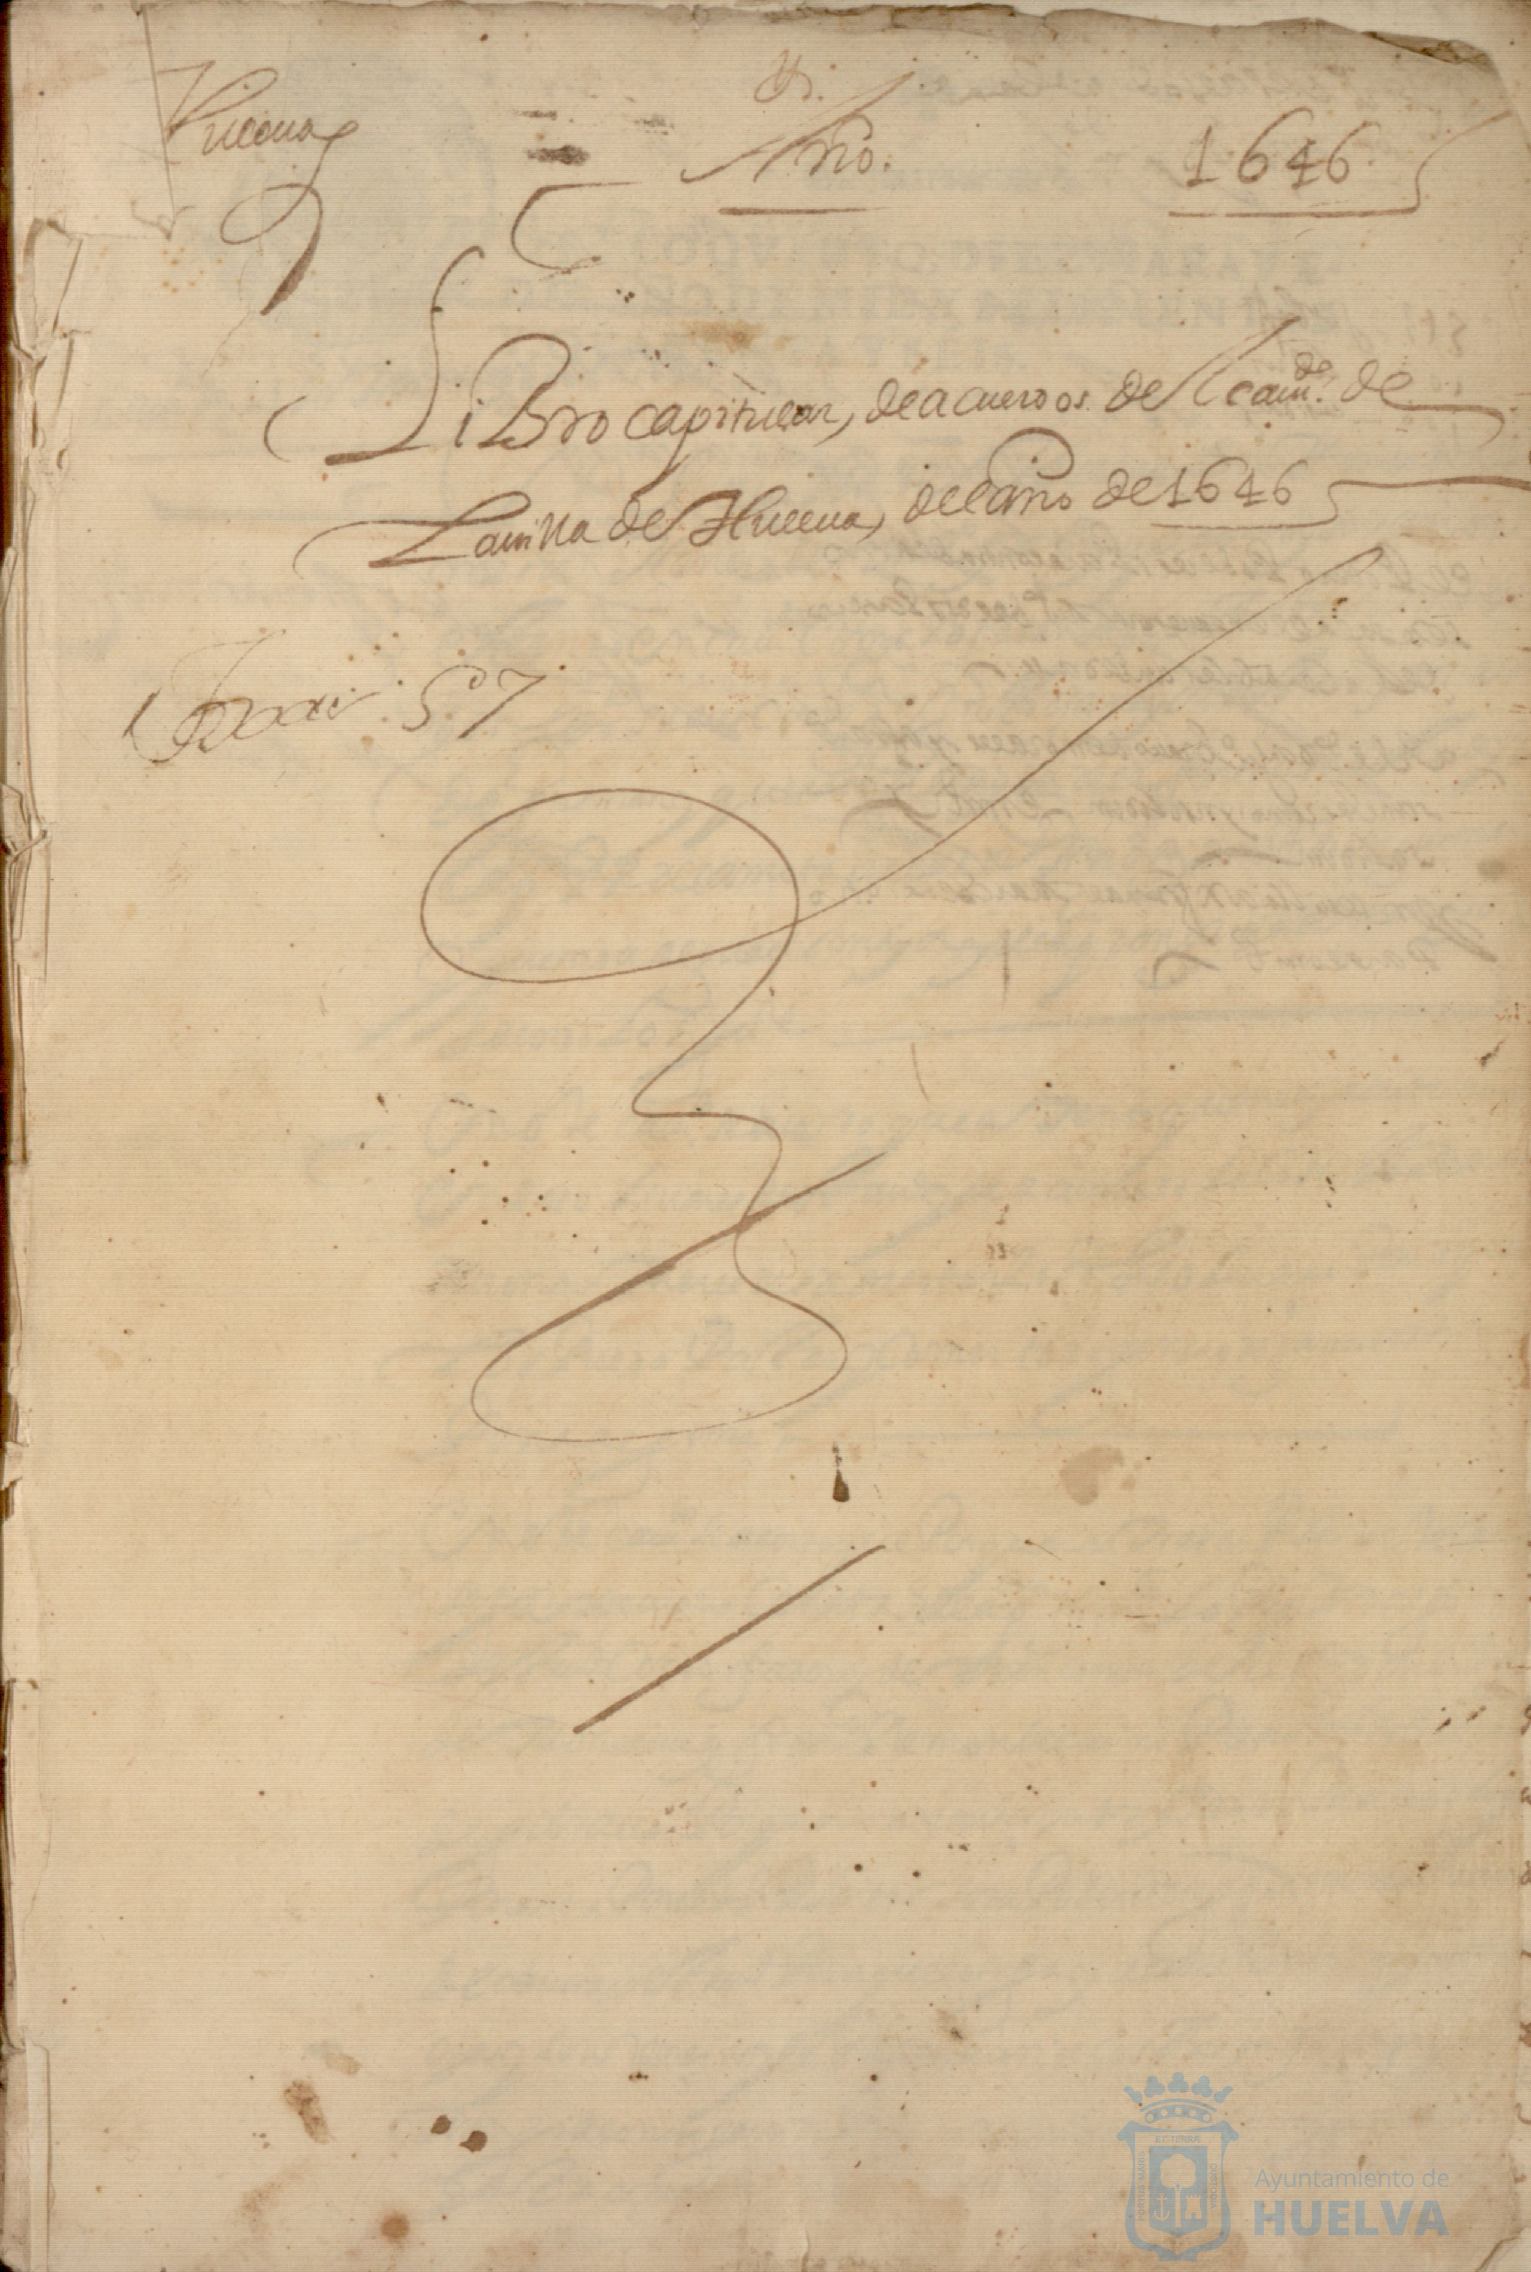 Huelua
Año. 1646
Libro capitular, de acuerdos del cauil.do de
La uilla de Huelua, del año de 1646
Ayuntamiento de
HUELVA